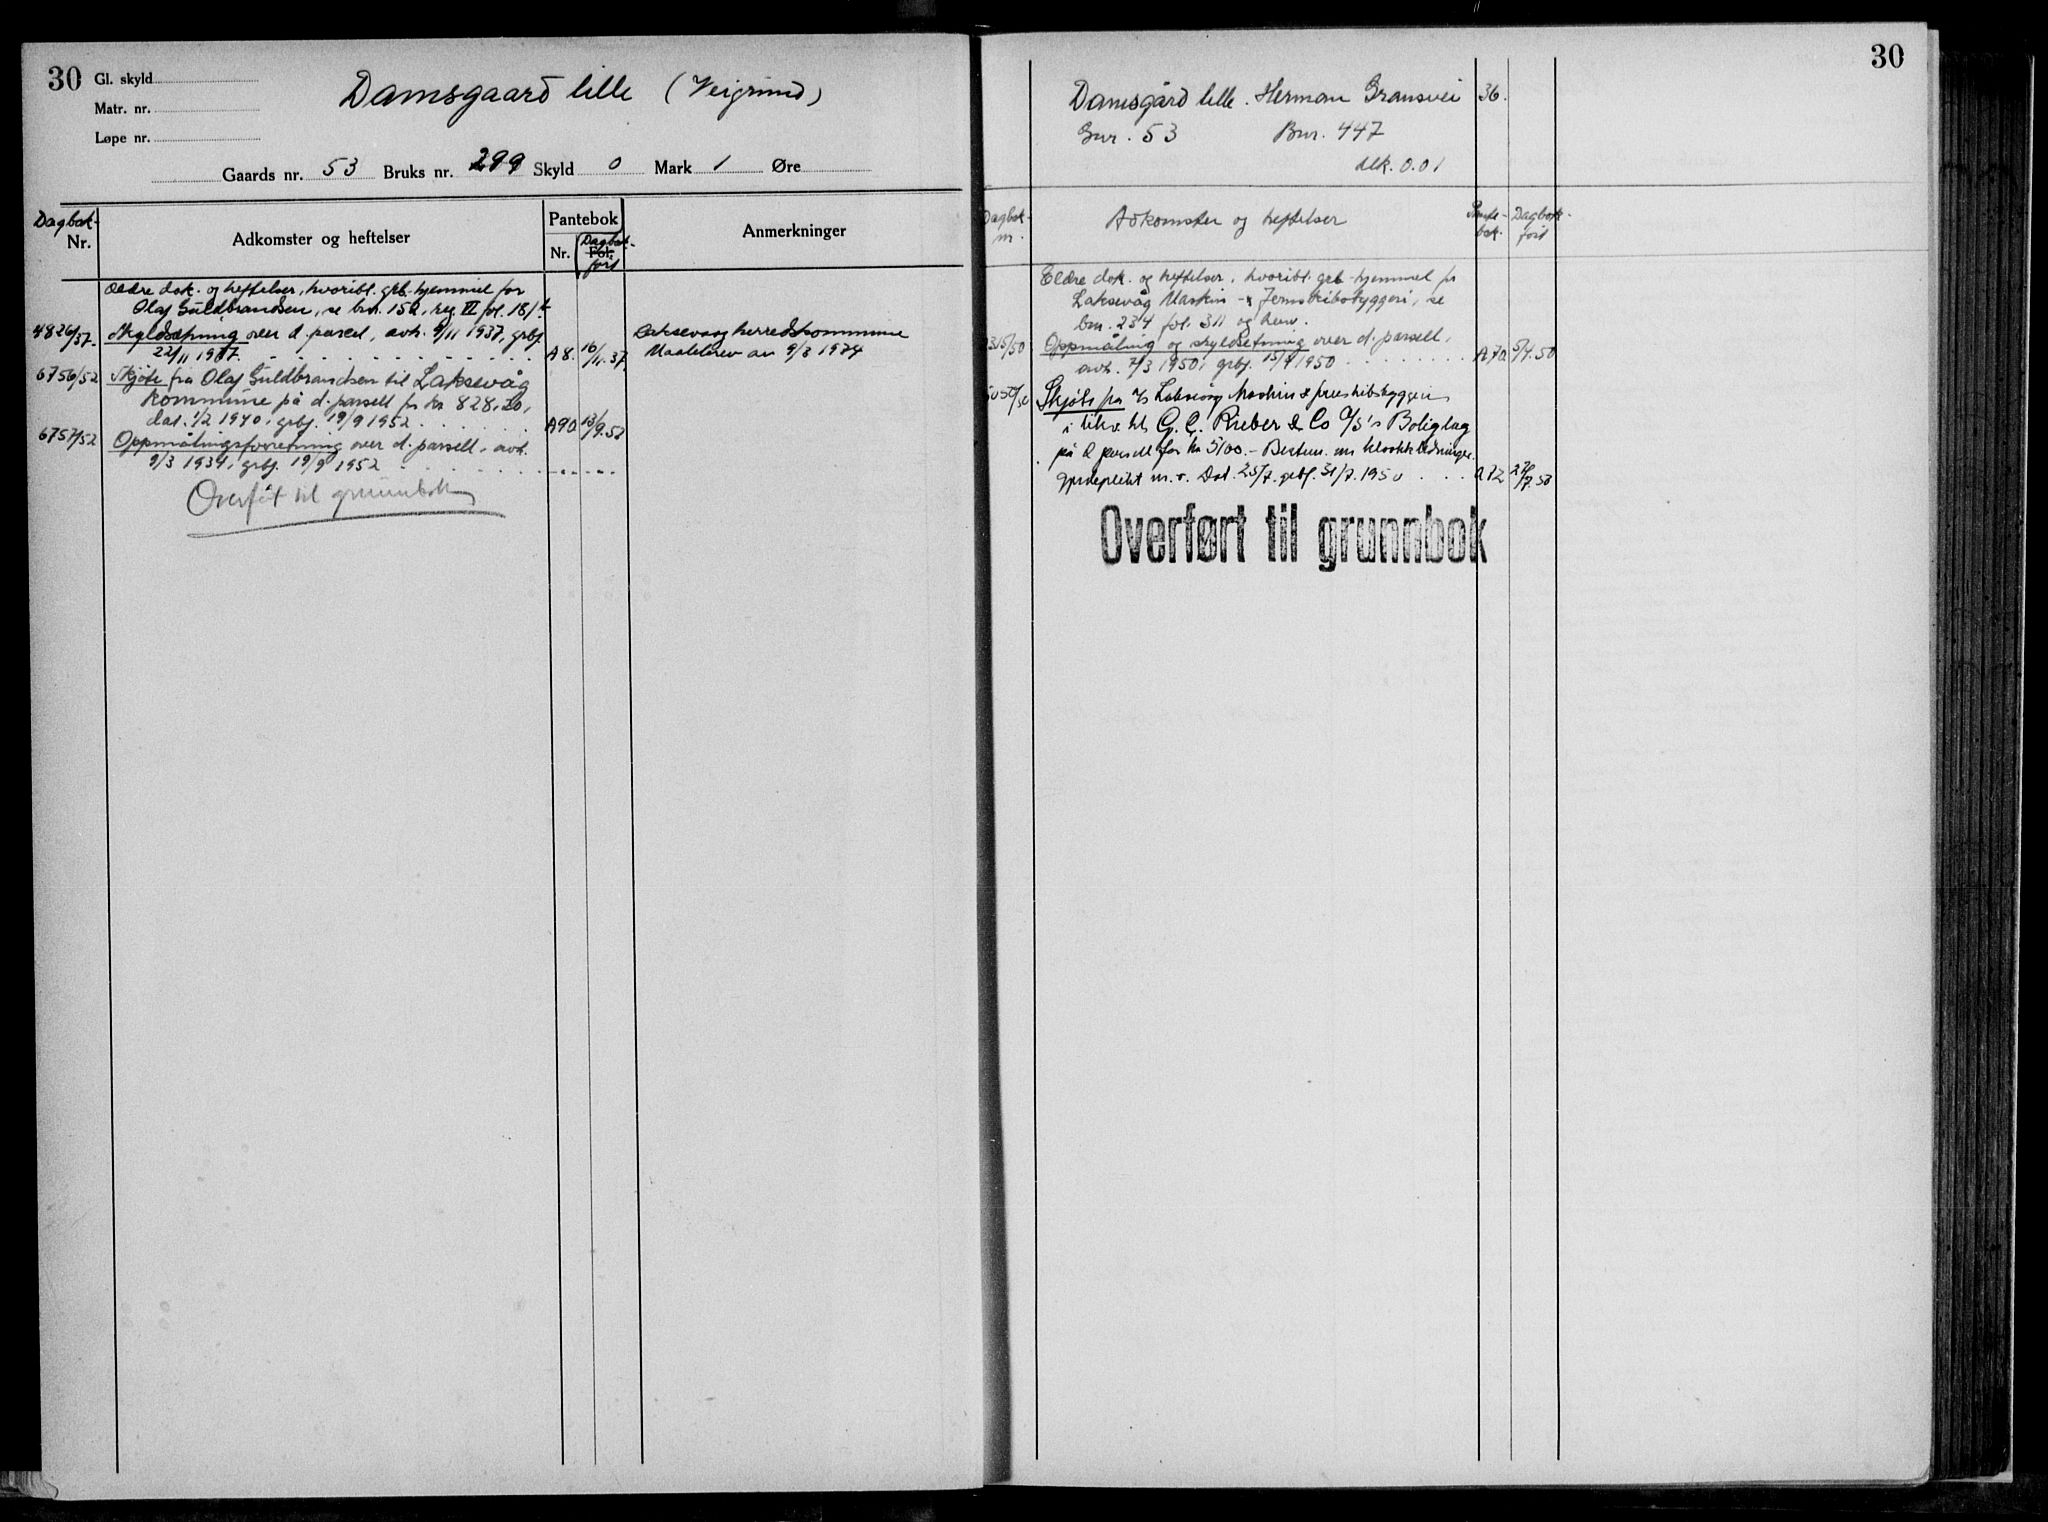 30
Gl. skyld
Matr. nr.
Løpe nr.
Damsgaard lille (Veigrund)
Gaards nr. 53 Bruks nr. 299 Skyld 0 Mark 1 Øre
Dagbok-
Nr.
Adkomster og heftelser
Pantebok
Nr.
Dagbok-
Fol.
ført
Anmerkninger
Ældre dok. og heftelser, hvoribl. grb.-hjemmel for
Olaf Guldbrandsen, se bnr. 152, reg. VI fol. 181.
4826/37. Skyldsetning over d. parcel, avh. 9/11 1937, grbf.
22/11 1937. A8. 16/11.37.
Laksevaag herredskommune
Maalebrev av 9/3 1934
6756/52 Skjøte fra Olaf Guldbrandsen til Laksevåg
kommune på d. parsell for kr 828,20,
dat. 1/2 1940, grbf. 19/9 1952 A90 13/9.52
6757/52 Oppmålingsforretning over d. parsell, avh.
9/3 1934, grbf. 19/9 1952
Overført til grunnbok
30
Damsgård lille. Herman Gransvei 36.
Gnr. 53 Bnr. 447
0.01
Dagbok-
nr.
Adkomster og heftelser
Pante-
bok.
Dagbok-
ført
Eldre dok. og heftelser, hvoribl. grb-hjemmel for
Laksevåg Maskin- & Jernskibsbyggeri, se
bnr. 234 fol. 311 og henv.
2315/50 Oppmåling og skyldsetning over d. parsell,
avh. 7/3 1950, grbf. 15/4 1950 A70 5/4.50
Skjøte fra A/S Laksevåg Maskin & jernskibsbyggeri
i likv. til G. C. Rieber & Co A/S's Boliglag
på d. parsell for kr 5100.- Bestem. om kloakkledninger
gjerdeplikt m.v. Dat. 25/7. grbf. 31/7. 1950 A72
Overført til grunnbok